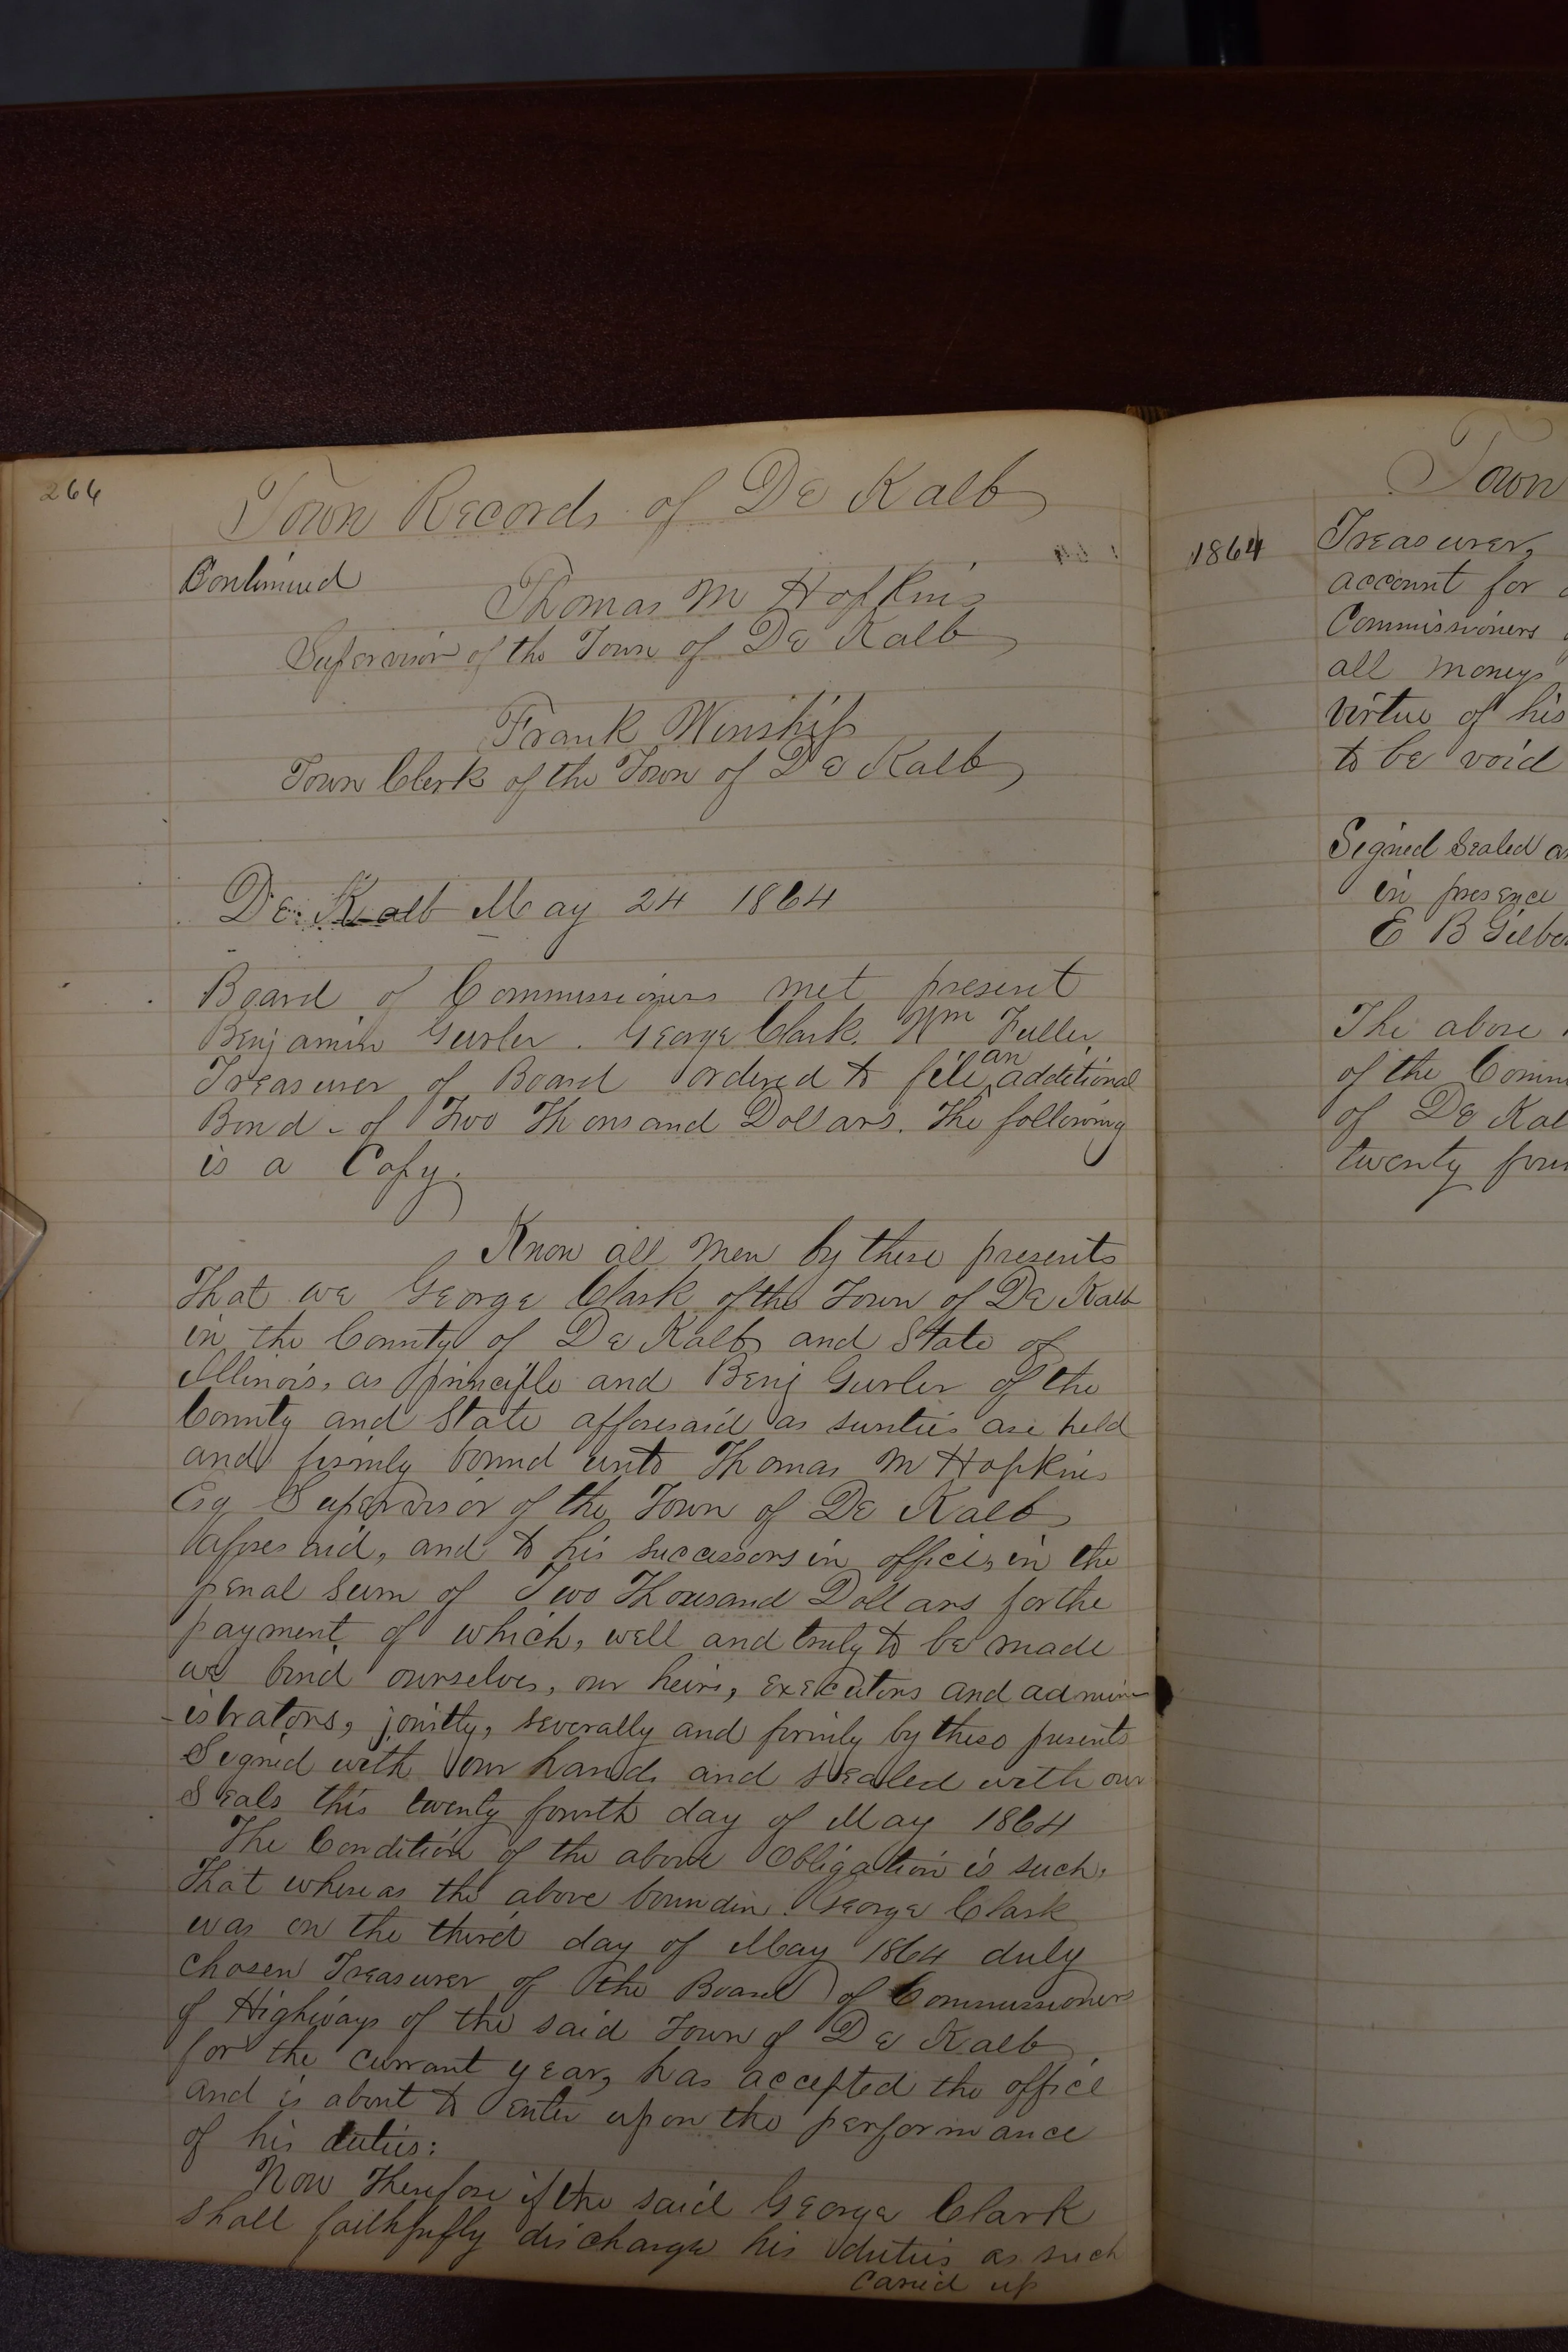 266
Town Records of De Kalb
Continued
Thomas M Hopkins
Supervisor of the Town of De Kalb
Frank Winship
Town Clerk of the Town of De Kalb
De Kalb May 24 1864
Board of Commissioners met present
Benjamin Gurler. George Clark. Wm Fuller,
Treasurer of Board ordered to file an additional
Bond - of Two Thousand Dollars. The following
is a Copy.
Know all men by these presents
That we George Clark of the Town of De Kalb
in the County of De Kalb and State of
Illinois, as principle and Benj Gurler of the
County and State afforesaid as surities are held
and firmly bound unto Thomas M Hopkins
Esq Supervisor of the Town of De Kalb
affore said, and to his successors in office, in the
penal sum of Two Thousand Dollars for the
payment of which, well and truly to be made
we bind ourselves, our heirs, executors and admin
-istrators, jointly, severally and firmly by these presents
Signed with our hands and sealed with our
Seals this twenty fourth day of May 1864
The Condition of the above Obligation is such,
That whereas the above boundin George Clark
was on the third day of May 1864 duly
chosen Treasurer of the Board of Commissioners
of Highways of the said Town of De Kalb,
for the currant year, has accepted the office
and is about to enter upon the performance
of his duties:
Now Therefore if the said George Clark
shall faithfully discharge his duties as such
caried up
Town
1864
Treasurer,
account for
Commissioners
all moneys
virtue of his
to be void
Signed Sealed
in presence
E B
The above
of the
of De
twenty